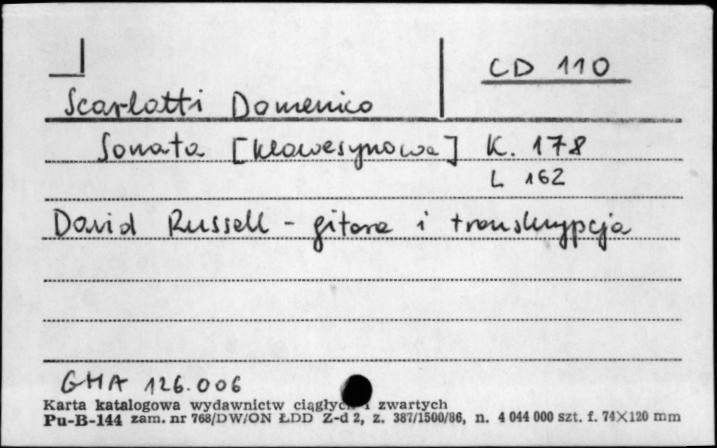 CD 110
Scarlatti Domenico
Sonata [klawesynowa] K. 178
L 162
David Russell - gitara i transkrypcja
GHA 126.006
Karta katalogowa wydawnictw ciągłych i zwartych
Pu-B-144 zam. nr 768/DW/ON ŁDD Z-d 2, z. 387/1500/86, n. 4 044 000 szt. f. 74×120 mm